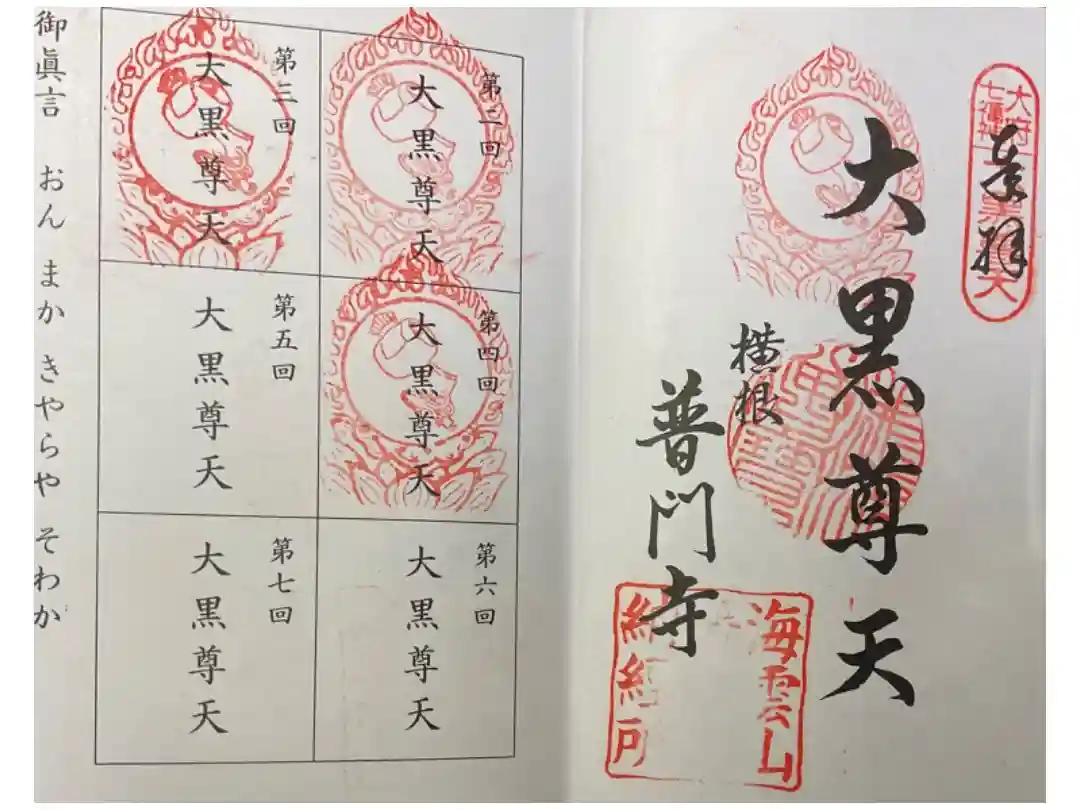 奉拝
大府
七福神
大黒尊天
横根
普門寺
海雲山
納経所
第二回
大黒尊天
第三回
大黒尊天
第四回
大黒尊天
第五回
大黒尊天
第六回
大黒尊天
第七回
大黒尊天
御眞言 おん まか きやらや そわか